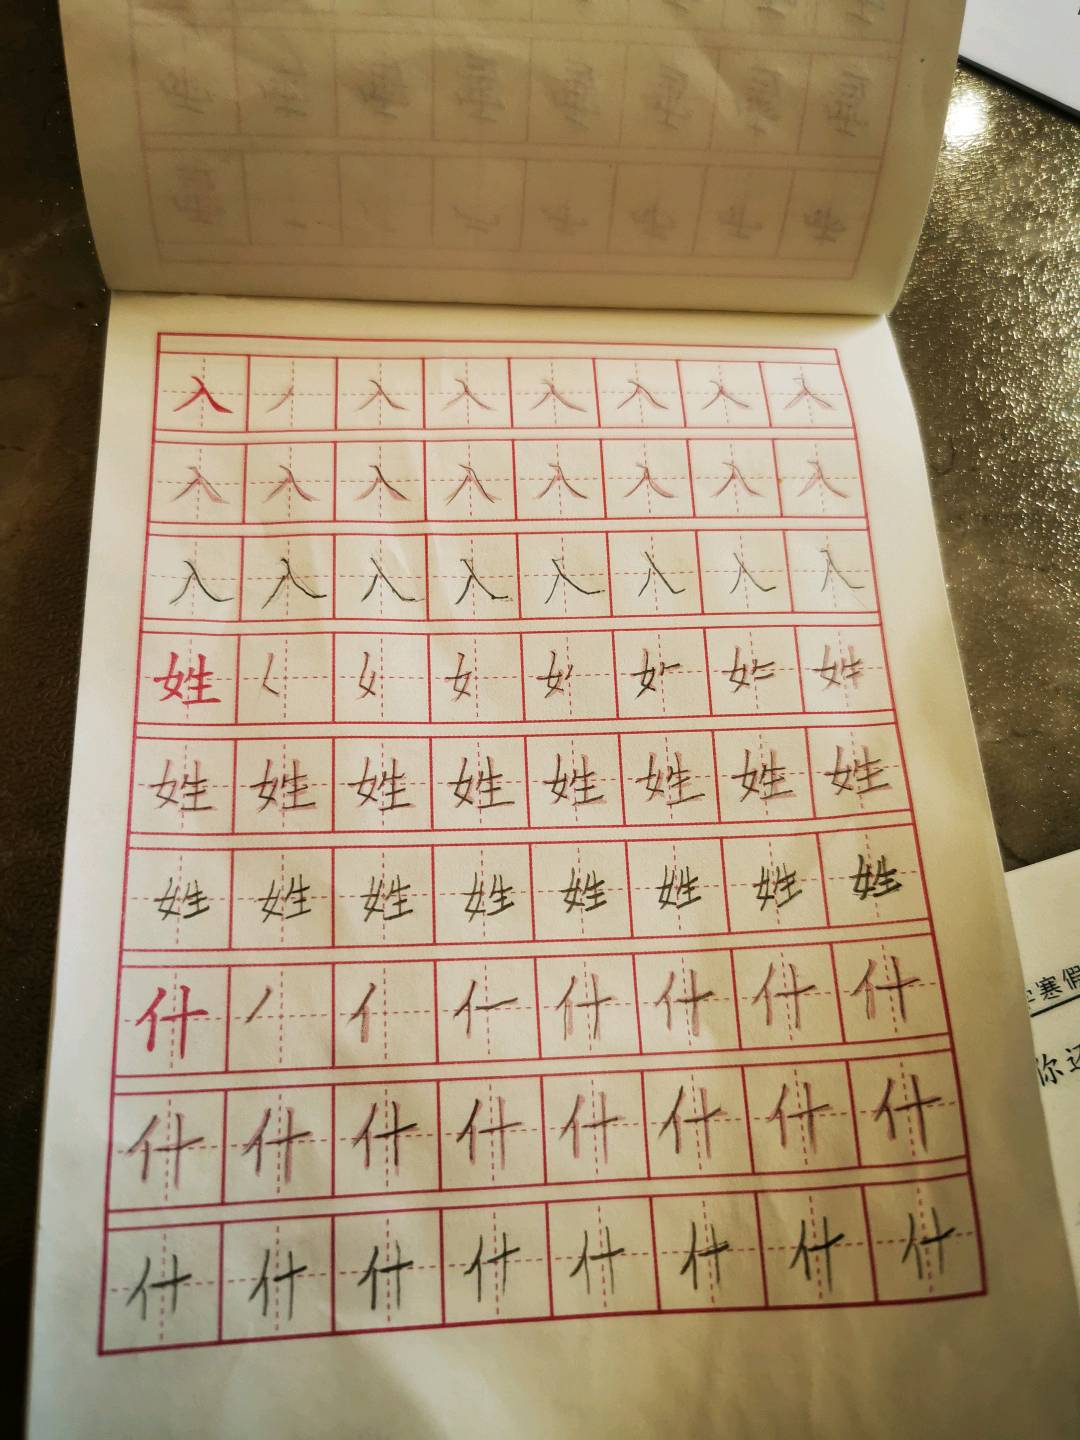 入 丿 入 入 入 入 入 入
入 入 入 入 入 入 入 入
入 入 入 入 入 入 入 入
姓 女 女 姓
姓 姓 姓 姓 姓 姓 姓 姓
姓 姓 姓 姓 姓 姓 姓 姓
什 丿 亻 什 什 什 什
什 什 什 什 什 什 什 什
什 什 什 什 什 什 什 什
寒假
你还